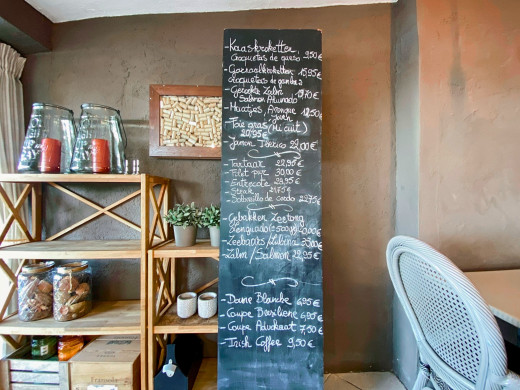 -Kaaskroketten
Croquetas de queso 9,50€
-Garnaalkroketten 15,95€
Croquetas de gambas
-Gerookte Zalm
Salmon Ahumado
-Haatjes, Arenque 12,50€
-Foie gras (Mi cuit)
20,95€
-Jamon Iberico 22,00€
-Tartaar 22,95€
-Filet pur 30,00€
-Entrecote 23,95€
-Steak
-Solomillo de cerdo
-Gebakken Zeetong
Lenguado
-Zeebaars/Lubina
-Zalm/Salmon 22,95€
-Dame Blanche 6,95€
-Coupe Bresilienne 6,95€
-Coupe Advokaat 7,50€
-Irish Coffee 9,50€